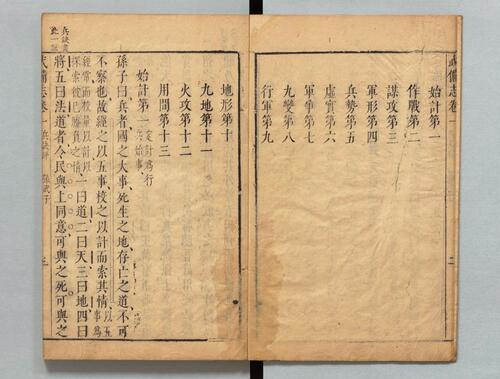 武備志卷一
二
始計第一
作戰第二
謀攻第三
軍形第四
兵勢第五
虛實第六
軍爭第七
九變第八
行軍第九
地形第十
九地第十一
火攻第十二
用間第十三
始計第一 定計爲行兵始事
孫子曰兵者國之大事死生之地存亡之道不可
不察也故經之以五事校之以計而索其情 以五事爲
經常而校量以計以探索彼己勝負之情 一曰道二曰天三曰地四曰
將五曰法道者令民與上同意可與之死可與之
武備志卷一 兵訣評 孫武子 三